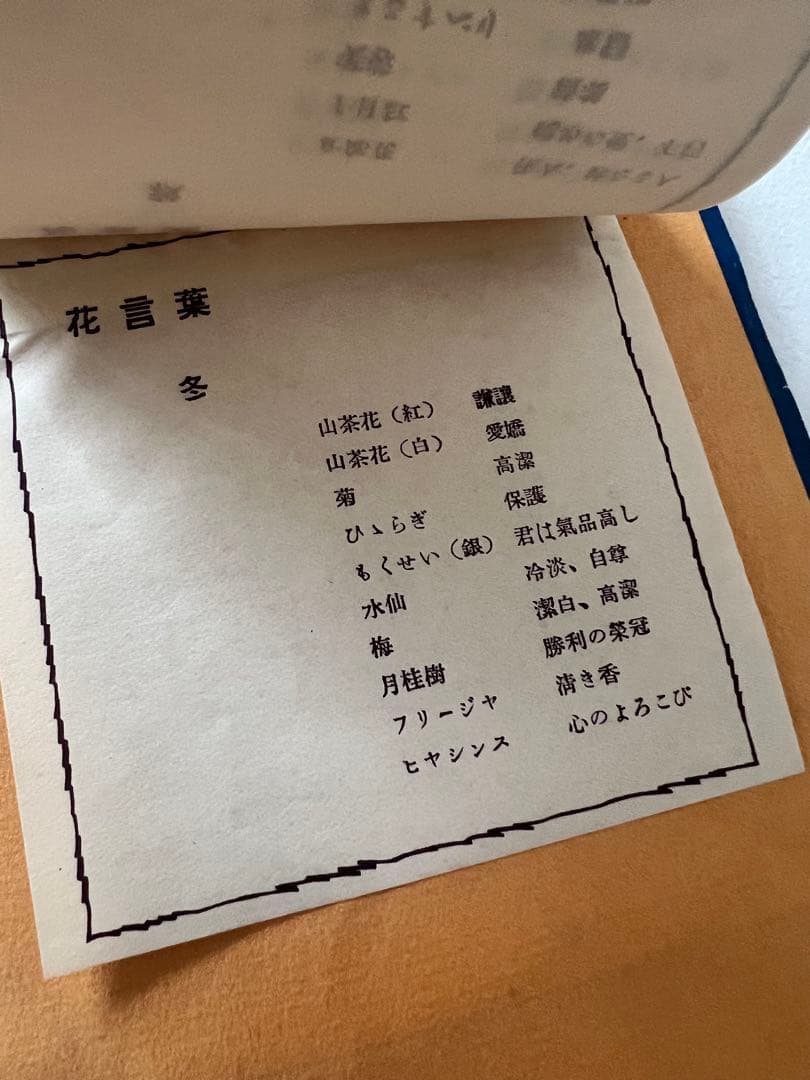 花言葉
冬
山茶花（紅） 謙讓
山茶花（白） 愛嬌
菊 高潔
ひゝらぎ 保護
もくせい（銀） 君は氣品高し
水仙 冷淡、自尊
梅 潔白、高潔
月桂樹 勝利の榮冠
フリージヤ 淸き香
ヒヤシンス 心のよろこび